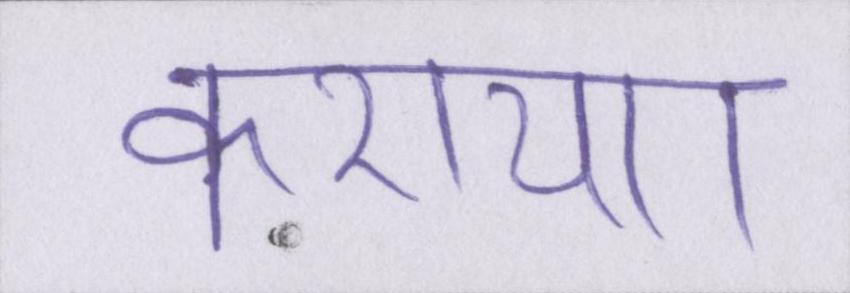 कराया